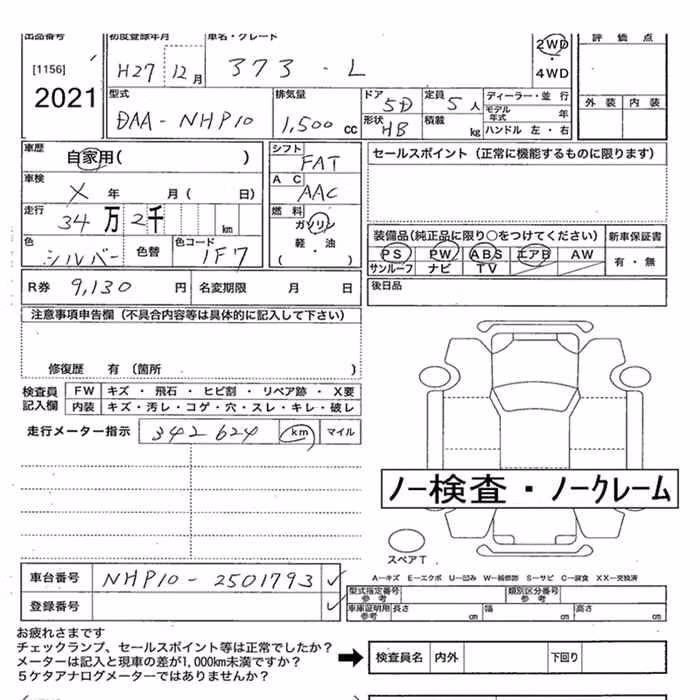 出品番号 初度登録年月 車名・グレード 評価点
[1156] H27 12月 373 - L 2WD・4WD
2021
型式 排気量 ドア 定員 ディーラー・並行 外装 内装
DAA-NHP10 1,500cc 5D 5人 モデル年式 年
形状 HB 積載 kg ハンドル 左・右
車歴 シフト セールスポイント（正常に機能するものに限ります）
自家用( ) FAT
車検 A C
X 年 月( 日) AAC
走行 燃料
34万2千 km ガソリン 装備品（純正品に限り○をつけてください） 新車保証書
色 色替 色コード 軽・油 PS PW ABS エアB AW 有・無
シルバー 1F7 ( ) サンルーフ ナビ TV
R券 9,130円 名変期限 月 日 後日品
注意事項申告欄（不具合内容等は具体的に記入して下さい）
修復歴 有（箇所 ）
検査員記入欄 FW キズ・飛石・ヒビ割・リペア跡・X要
内装 キズ・汚レ・コゲ・穴・スレ・キレ・破レ
走行メーター指示 342624 km マイル
ノー検査・ノークレーム
スペアT
車台番号 NHP10-2501793 ✓
A－キズ E－エクボ U－凹み W－補修跡 S－サビ C－腐食 XX－交換済
型式指定番号 参考 類別区分番号 参考
登録番号 ✓ 車庫証明用参考 長さ cm 幅 cm 高さ cm
お疲れさまです
チェックランプ、セールスポイント等は正常でしたか?
メーターは記入と現車の差が1,000km未満ですか? ➡ 検査員名 内外 下回り
５ケタアナログメーターではありませんか?